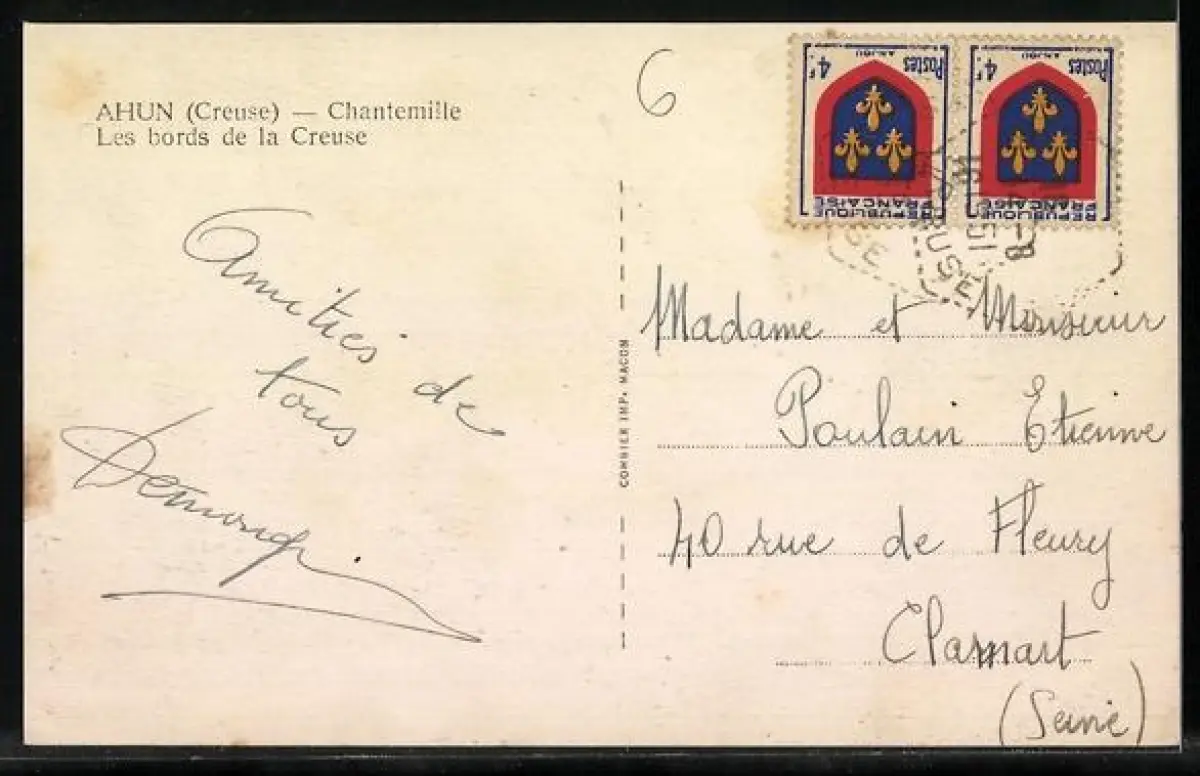 AHUN (Creuse) — Chantemille
Les bords de la Creuse
6
Postes 4F
ANJOU
REPUBLIQUE
FRANÇAISE
Postes 4F
ANJOU
REPUBLIQUE
FRANÇAISE
CREUSE
51
Amitiés de
tous
COMBIER IMP. MACON
Madame et Monsieur
Poulain Etienne
40 rue de Fleury
Clamart
(Seine)